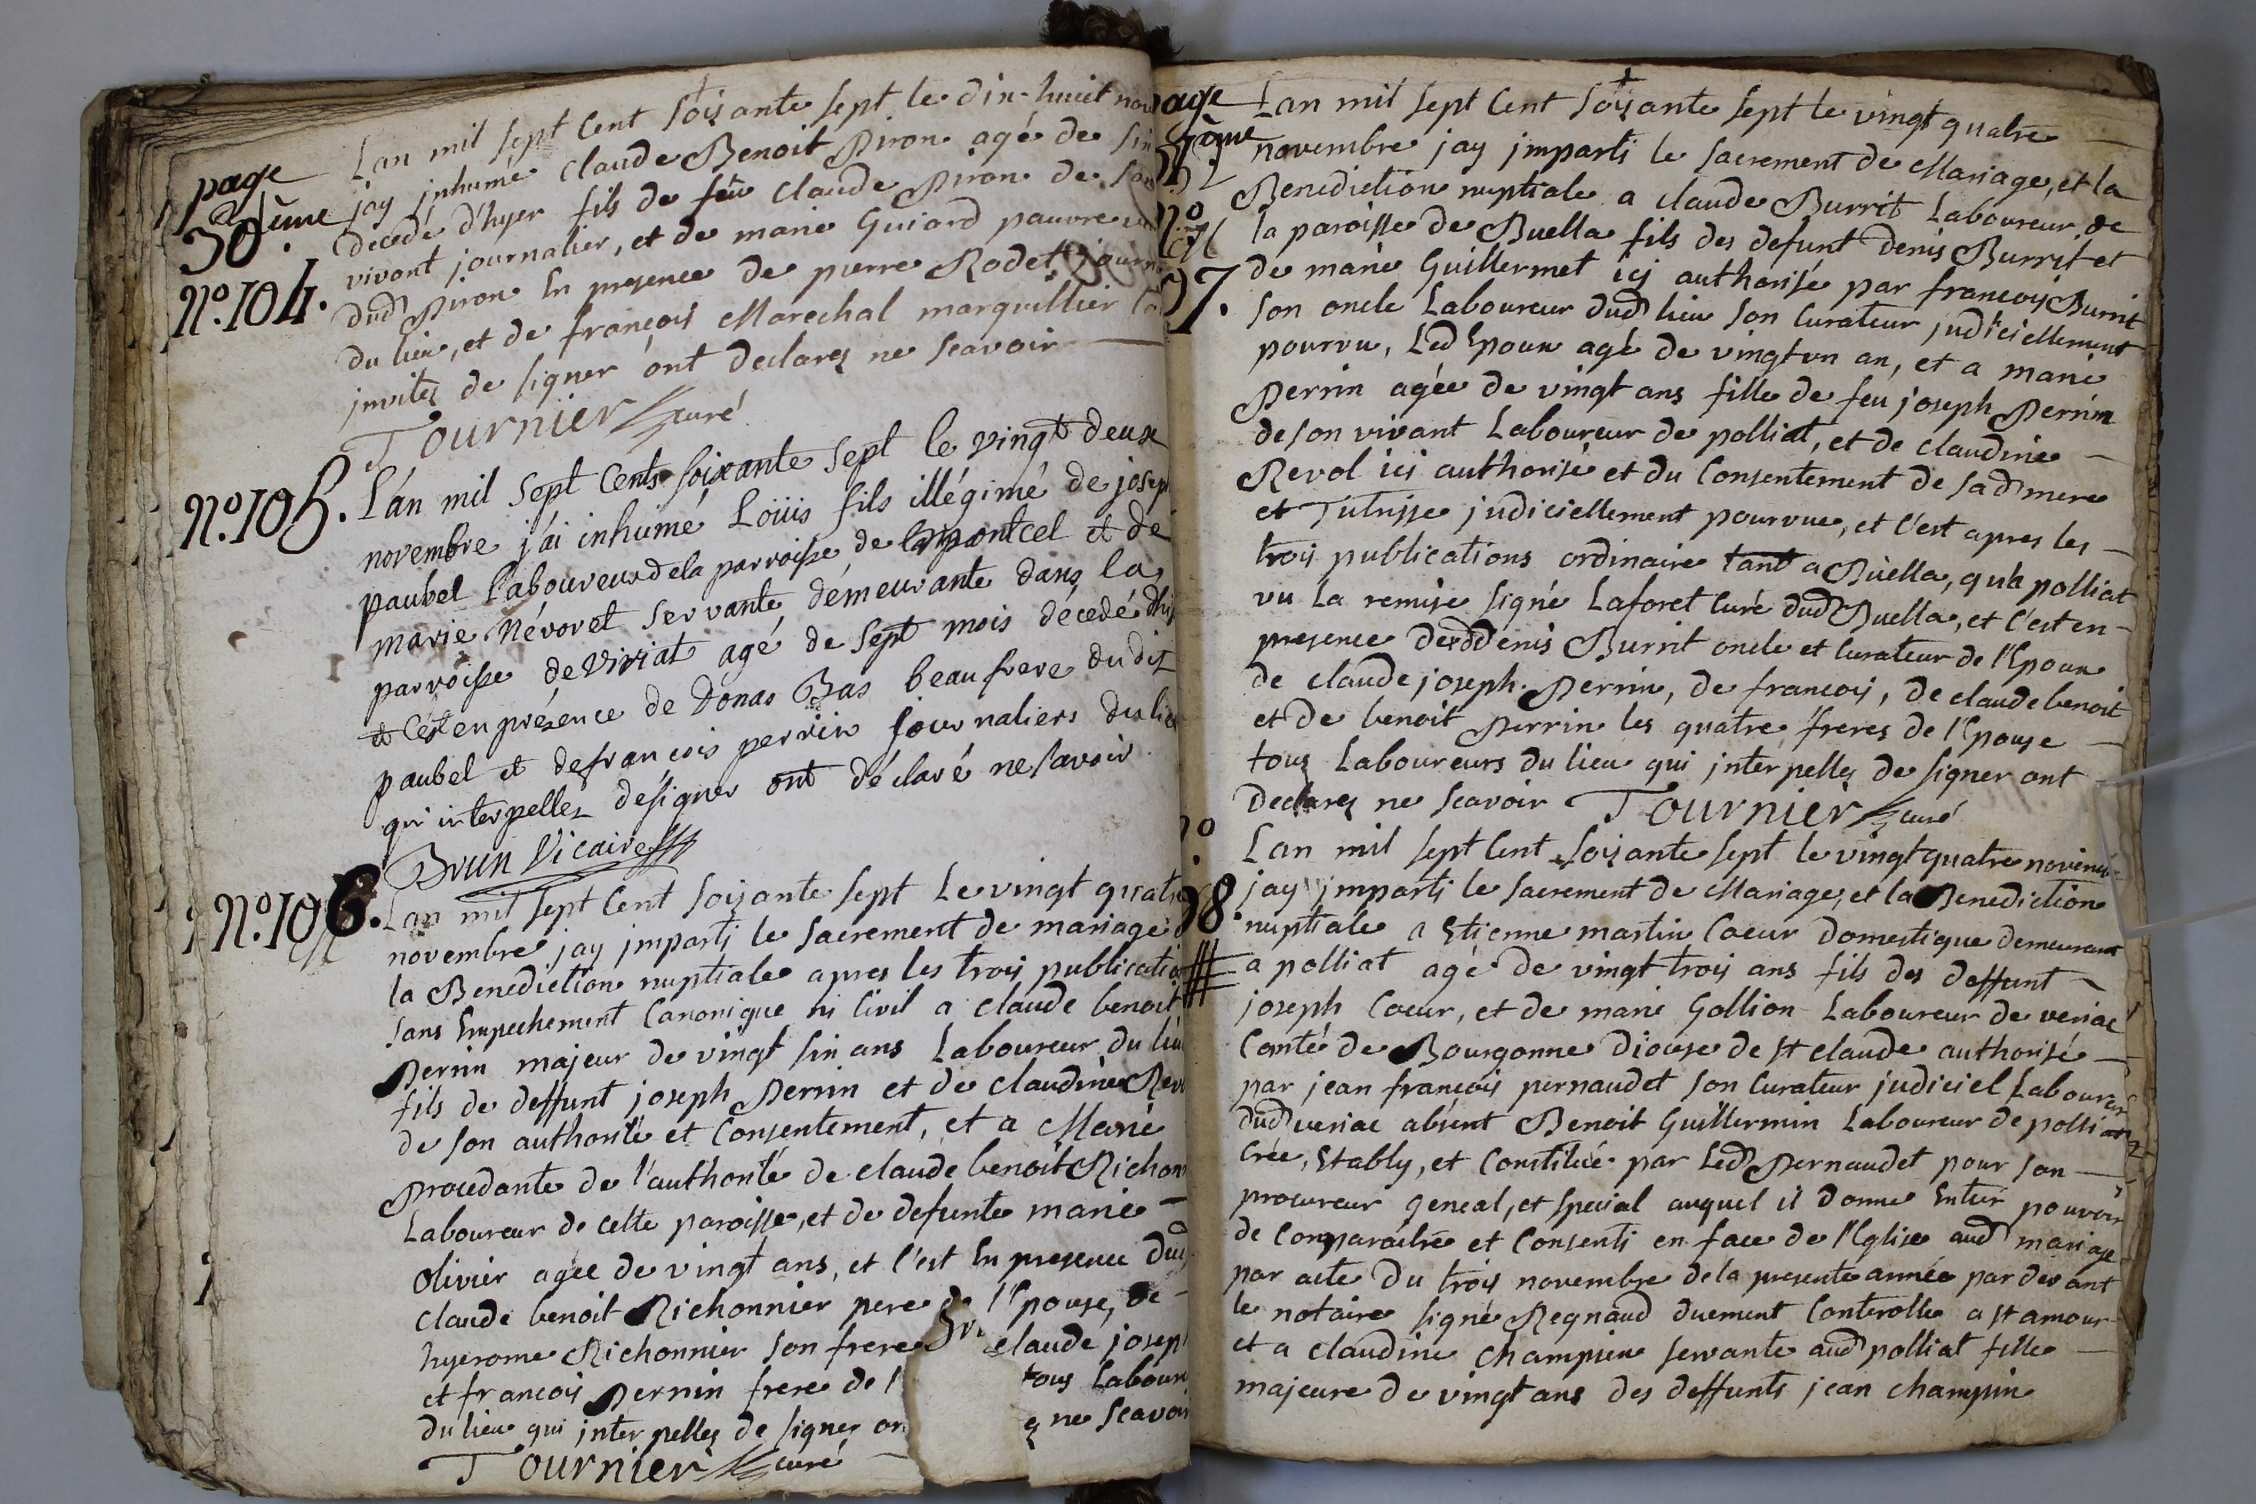 page
30ème
N°.104.
Lan mil sept Cent soixante sept le dix-huit nov
jay inhumé Claude Benoit Piron agé de sin
decedé d'hyer fils de feu Claude Piron de son
vivant journalier, et de marie Guiard pauvre
dud Piron En presence de pierre Rodet journ
du lieu, et de françois Marechal marguillier
jnvités de signer ont declarez ne scavoir
Tournier curé
N°.105.
L'an mil sept Cents soixante sept le vingt deux
novembre j'ai inhumé Loüis fils illégimé de josep
paubel laboureur de la parroisse de et dé
marie Névoret servante, démeurante dans la
parroisse de Viriat agé de sept mois décedé d'hi
et C'est en présence de Donas Bas beau frere du dit
paubel et de françois perrin journaliers du lieu
qui interpellez désigner ont déclaré ne savoir
Brun Vicaire
N°.106.
Lan mil sept Cent soixante sept Le vingt quatre
novembre jay jmparti le sacrement de mariage
la Benediction nuptiale apres les trois publicatio
sans Empechement Canonique ni Civil a claude benoit
Perrin majeur de vingt sin ans Laboureur du lieu
fils de deffunt joseph Perrin et de claudine Rev
de son authorité et Consentement, et a Marie
Procedante de l'authorité de claude benoit Richon
Laboureur de cette paroisse, et de defunte marie
Olivier agée de vingt ans, et C'est En presence dud
claude benoit Richonnier pere de l'Epouse, de
hyerome Richonnier son frere claude josep
et francois Perrin frere de l tous Labour
du lieu qui jnterpellez de signer on z ne scavoir
Tournier curé
page
N°
107.
Lan mil sept Cent soixante sept le vingt quatre
novembre jay jmparti le sacrement de Mariage, et la
Benediction nuptiale a claude Burrit Laboureur de
la paroisse de Buella fils des defunt Denis Burrit et
de marie Guillermet ici authorisé par françois Burrit
son oncle Laboureur dud lieu son Curateur judiciellement
pourvu, Led Epoux agé de vingt un an, et a marie
Perrin agée de vingt ans fille de feu joseph Perrin
de son vivant Laboureur de polliat, et de claudine
Revol ici authorisé et du Consentement de sad mere
et Tutrisse judiciellement pourvue, et C'est apres les
trois publications ordinaire tant a Buella, qu'a polliat
vu La remise signé Laforet Curé dud Buella, et C'est en
presence dud denis Burrit oncle et Curateur de l'Epoux
de claude joseph Perrin, de francois, de claude benoit
et de benoit Perrin les quatre freres de l'Epouse
tous Laboureurs du lieu qui jnterpellez de signer ont
declarez ne scavoir Tournier curé
N°
108.
Lan mil sept Cent soixante sept le vingt quatre novembre
jay jmparti le sacrement de Mariage, et la Benediction
nuptiale a Etienne martin Coeur domestique demeurant
a polliat agé de vingt trois ans fils des deffunt
joseph Coeur, et de marie Gollion Laboureur de veriac
Comté de Bourgonne Dioise de st claude authorisé
par jean francois pernaudet son Curateur judiciel Laboureur
dud veriac absent Benoit Guillermin Laboureur de polliat
Crée, Etably, et Constitué par Led Pernaudet pour son
procureur geneal, et special auquel il donne Entier pouvoir
de Comparoitre et Consenti en face de l'Eglise aud mariage
par acte du trois novembre de la presente année par devant
le notaire signé Regnaud duement Controllé a st amour
et a claudine Champion servante aud polliat fille
majeure de vingt ans des deffunts jean champin